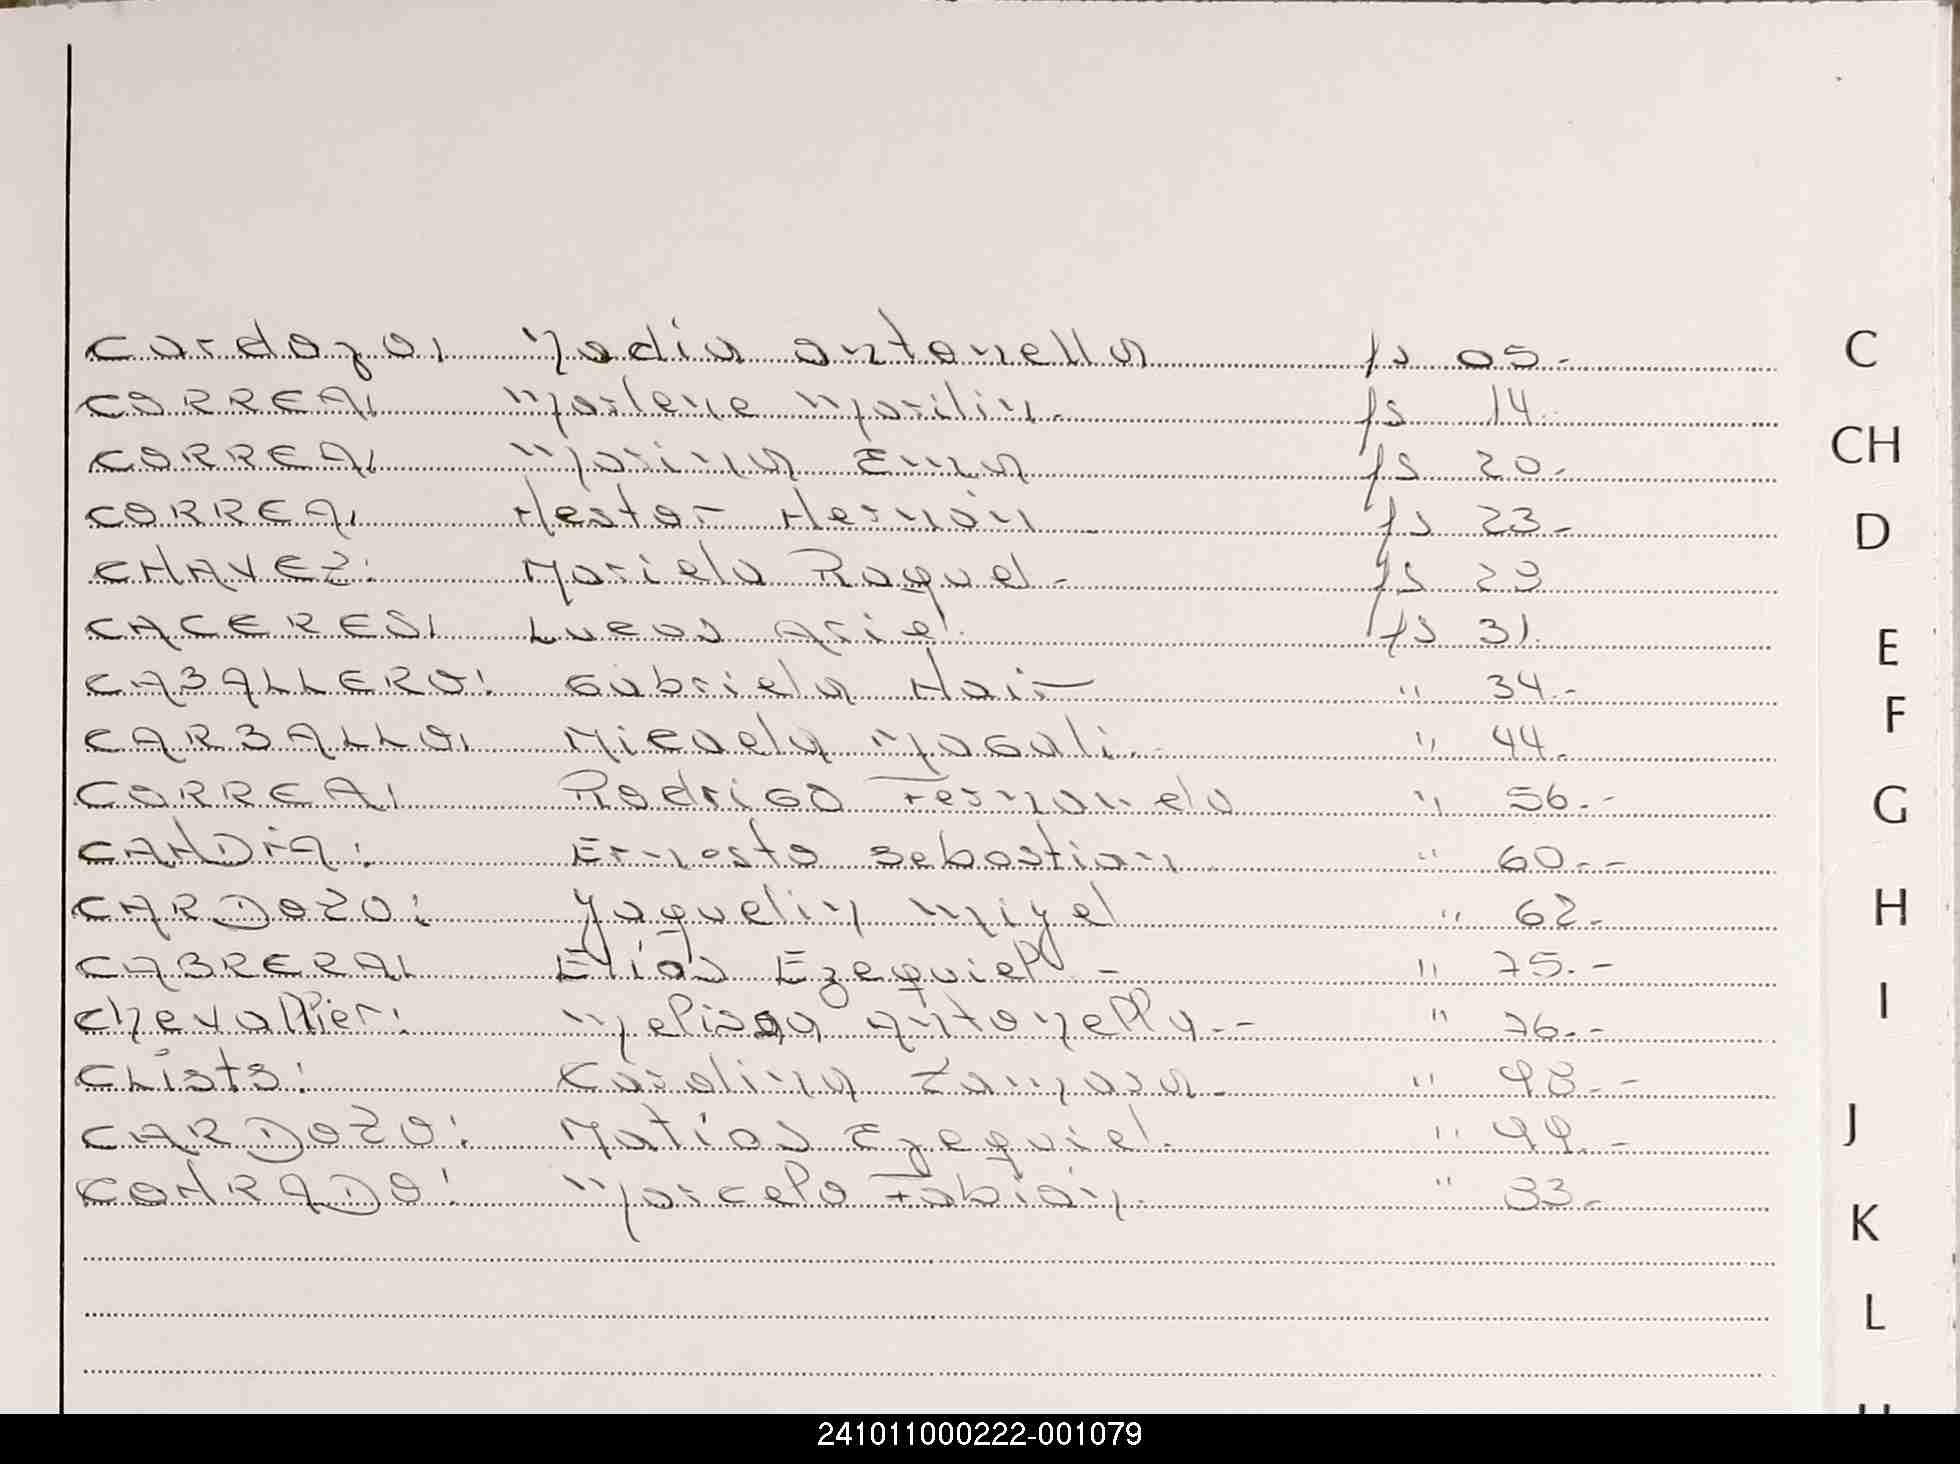 Cardozo, Nadia Antonella fs 05.-
CORREA, Marlene Marilin.- fs 14.
CORREA, Marina Ema fs 20.-
CORREA, Nestor Hernán fs 23.-
CHAVEZ: Mariela Raquel.- fs 29
CACERES, Lucas Ariel. fs 31.
CABALLERO: Gabriela Nair " 34.-
CARBALLO, Micaela Magali.- " 44.-
CORREA, Rodrigo Fernando " 56.--
CANDIA: Ernesto Sebastian " 60.--
CARDOZO: Yaquelin " 62.-
CABRERA, Elías Ezequiel - " 75.-
Chevallier: Melissa Antonella.-- " 76.--
Carolina " 98.--
CARDOZO: Matías Ezequiel. " 99.-
CONRADO: Marcelo Fabián. " 33.-
C
CH
D
E
F
G
H
I
J
K
L
241011000222-001079